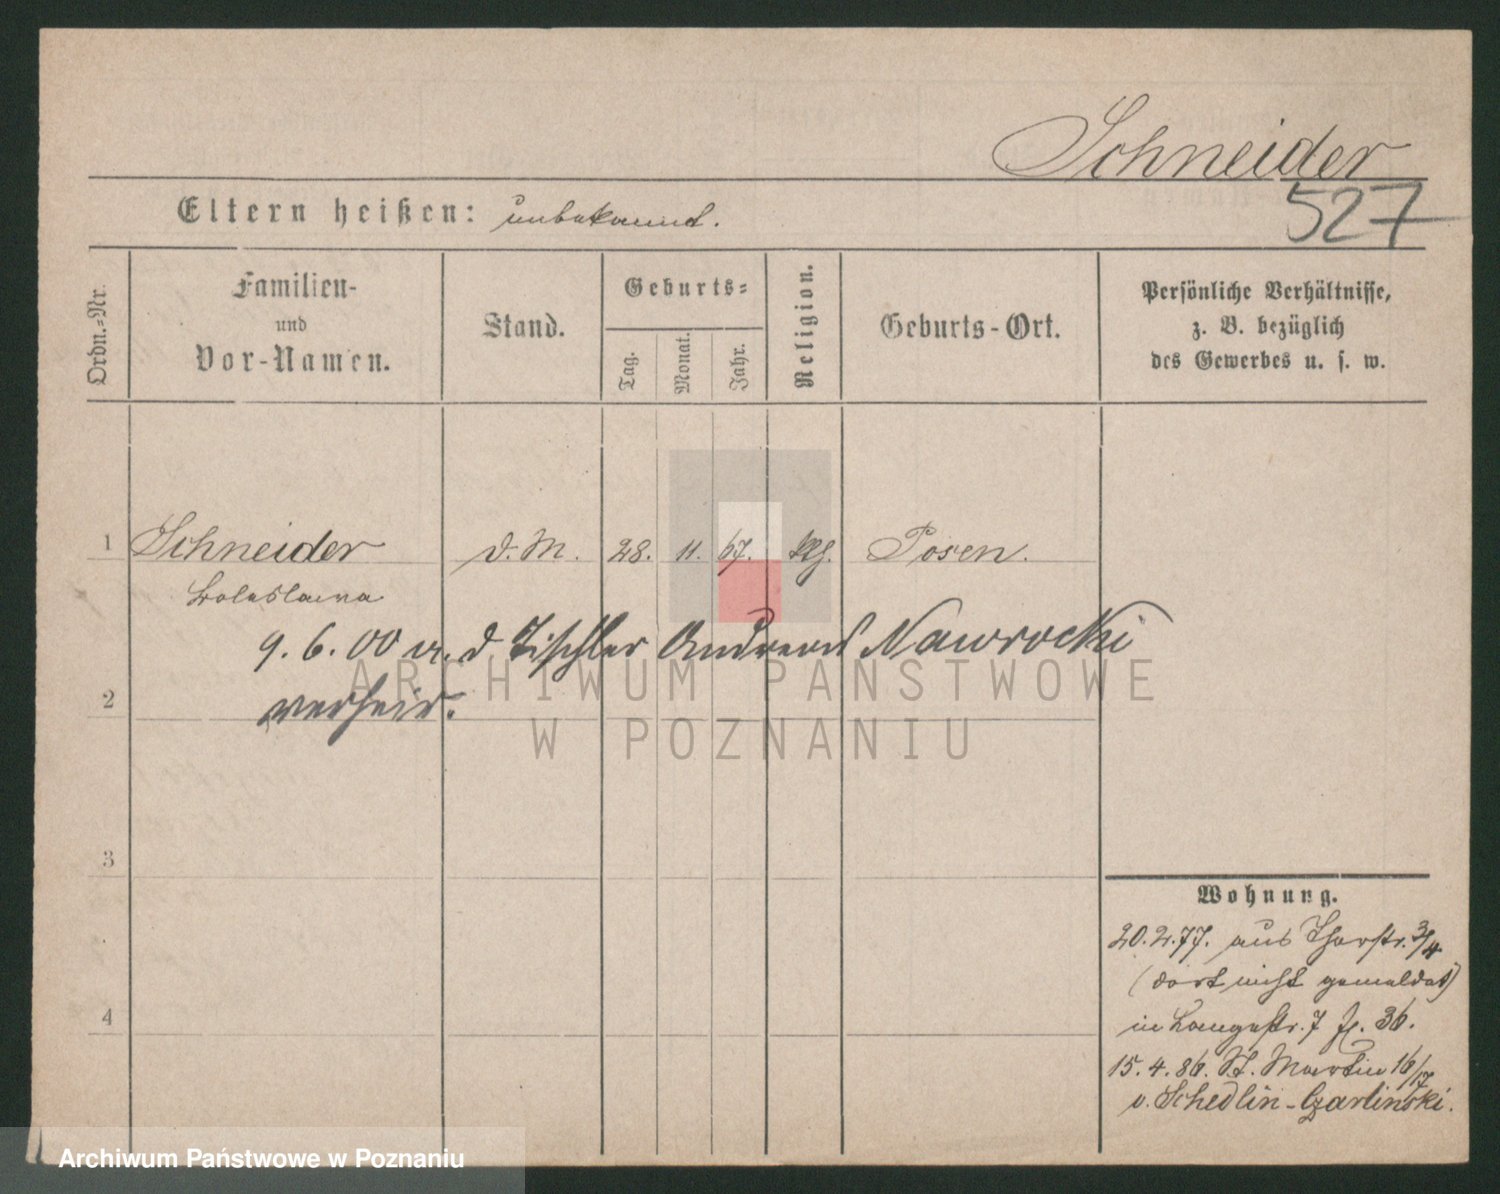 Schneider
527
Eltern heißen: unbekannt.
Ordn.-Nr.
Familien-
und
Vor-Namen.
Stand.
Geburts-
Tag.
Monat.
Jahr.
Religion.
Geburts-Ort.
Persönliche Verhältnisse,
z. B. bezüglich
des Gewerbes u. s. w.
1 Schneider d. M. 28. 11. 67. kth. Posen.
Boleslawa
9. 6. 00 m. d Tischler Andreas Nawrocki
2 verheir.
3
4
Wohnung.
20.2.77. aus Thorstr. 3/4
(dort nicht gemeldet)
in Langestr. 7 36.
15. 4. 86. St. Martin 16/17
v. Schedlin-Czarlinski.
ARCHIWUM PAŃSTWOWE
W POZNANIU
Archiwum Państwowe w Poznaniu